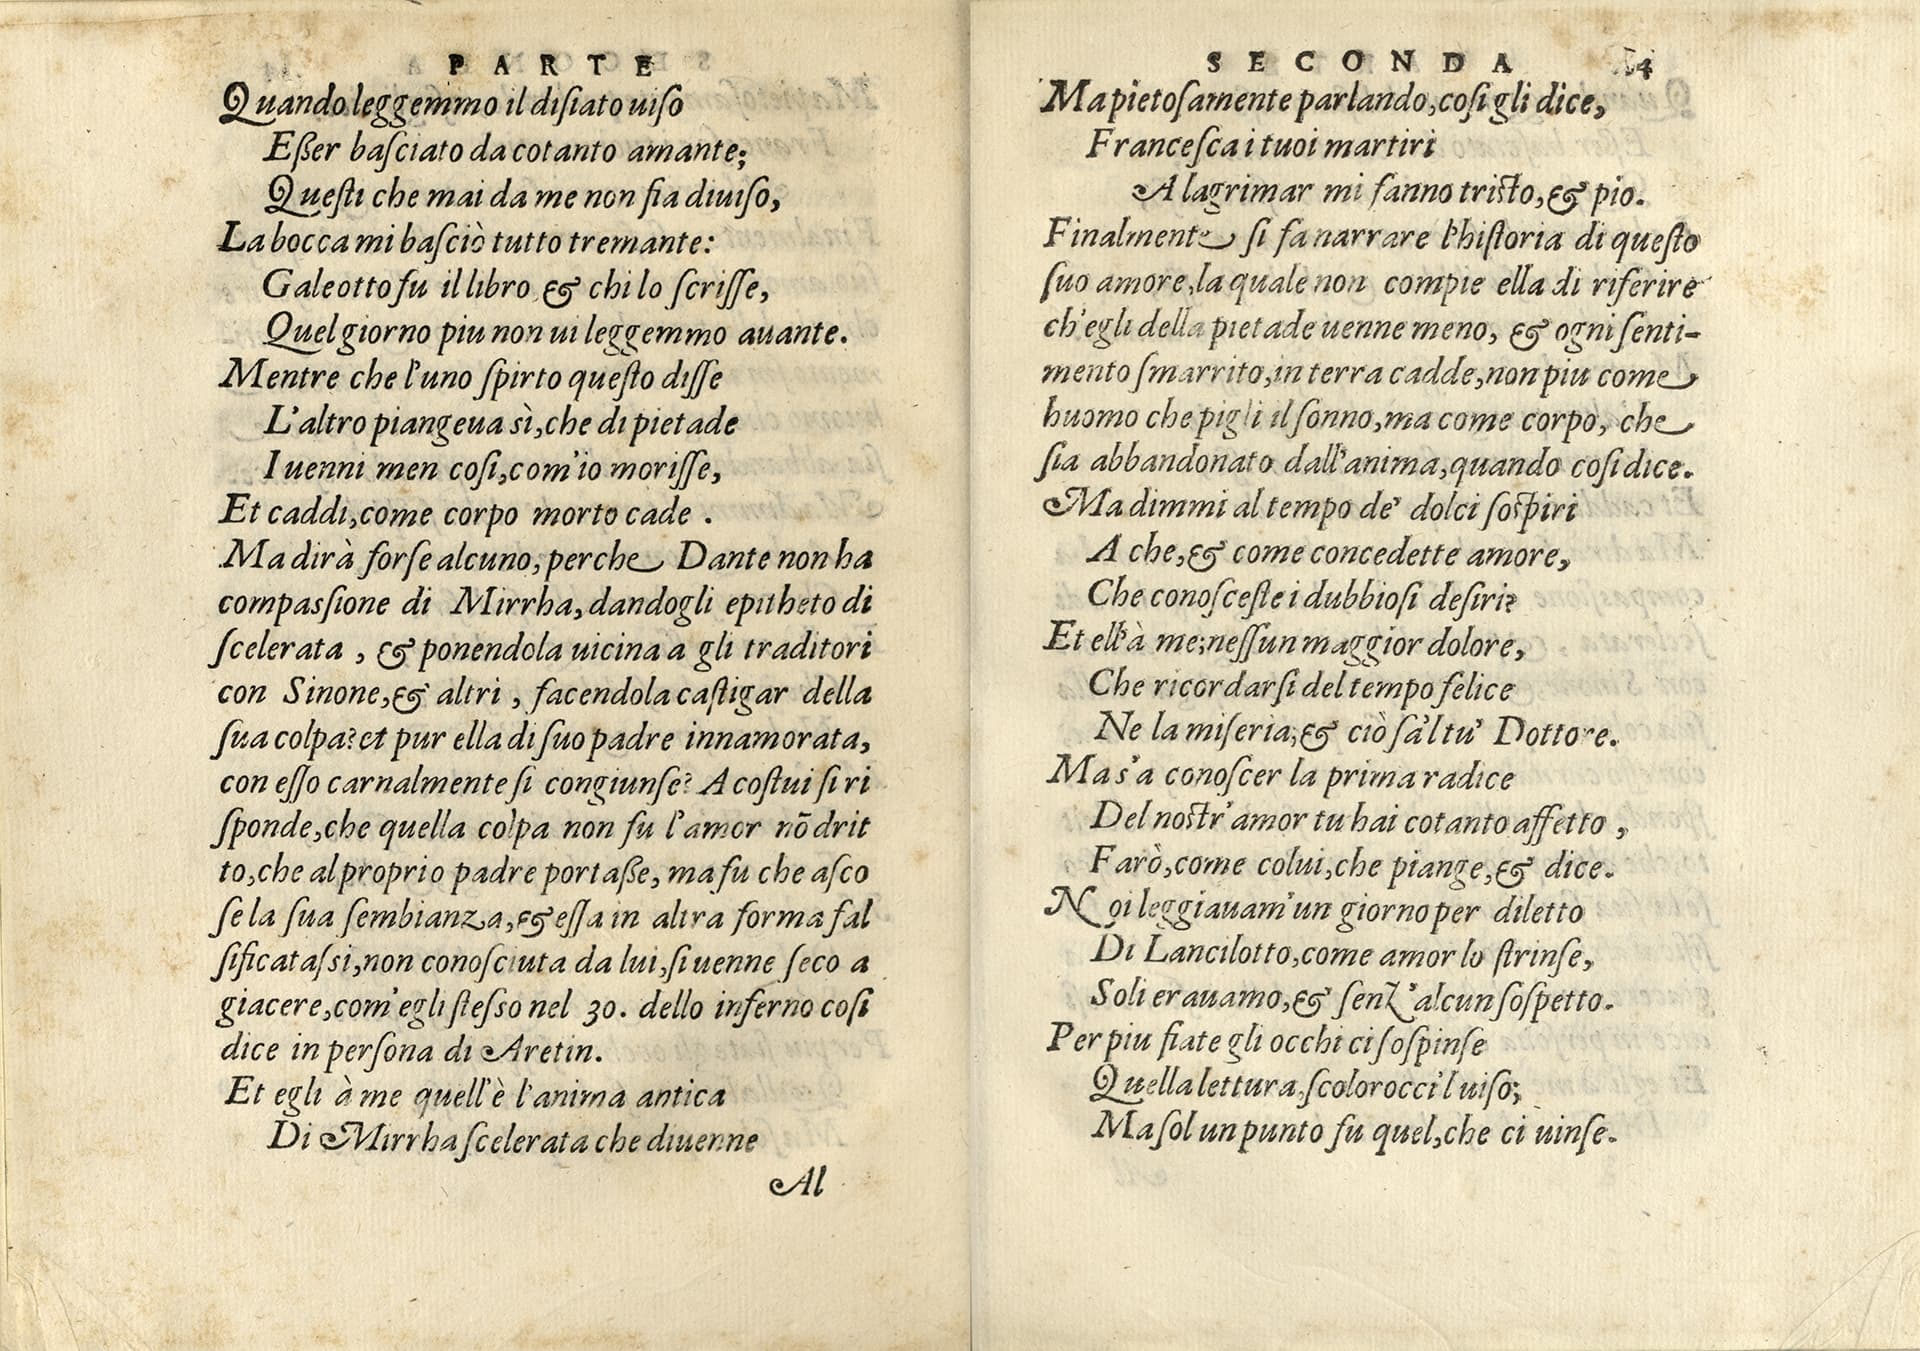 PARTE
Quando leggemmo il disiato uiso
Eßer basciato da cotanto amante;
Questi che mai da me non fia diuiso,
La bocca mi basciò tutto tremante:
Galeotto fu il libro & chi lo scrisse,
Quel giorno piu non ui leggemmo auante.
Mentre che l'uno spirto questo disse
L'altro piangeua sì, che di pietade
I uenni men cosi, com'io morisse,
Et caddi, come corpo morto cade.
Ma dirà forse alcuno, perche Dante non ha
compassione di Mirrha, dandogli epitheto di
scelerata, & ponendola uicina a gli traditori
con Sinone, & altri, facendola castigar della
sua colpa? et pur ella di suo padre innamorata,
con esso carnalmente si congiunse? A costui si ri
sponde, che quella colpa non fu l'amor nõ drit
to, che al proprio padre portaße, ma fu che asco
se la sua sembianza, & essa in altra forma fal
sificatasi, non conosciuta da lui, si uenne seco a
giacere, com'egli stesso nel 30. dello inferno cosi
dice in persona di Aretin.
Et egli à me quell'è l'anima antica
Di Mirrha scelerata che diuenne
Al
SECONDA 14
Ma pietosamente parlando, cosi gli dice,
Francesca i tuoi martiri
A lagrimar mi fanno tristo, & pio.
Finalmente si fa narrare l'historia di questo
suo amore, la quale non compie ella di riferire
ch'egli della pietade uenne meno, & ogni senti-
mento smarrito, in terra cadde, non piu come
huomo che pigli il sonno, ma come corpo, che
sia abbandonato dall'anima, quando cosi dice.
Ma dimmi al tempo de' dolci sospiri
A che, & come concedette amore,
Che conosceste i dubbiosi desiri?
Et ell'à me; nessun maggior dolore,
Che ricordarsi del tempo felice
Ne la miseria, & ciò sa'l tu' Dottore.
Ma s'a conoscer la prima radice
Del nostr'amor tu hai cotanto affetto,
Farò, come colui, che piange, & dice.
Noi leggiauam'un giorno per diletto
Di Lancilotto, come amor lo strinse,
Soli erauamo, & senz'alcun sospetto.
Per piu fiate gli occhi ci sospinse
Quella lettura, scolorocci'l uiso;
Ma sol un punto fu quel, che ci uinse.